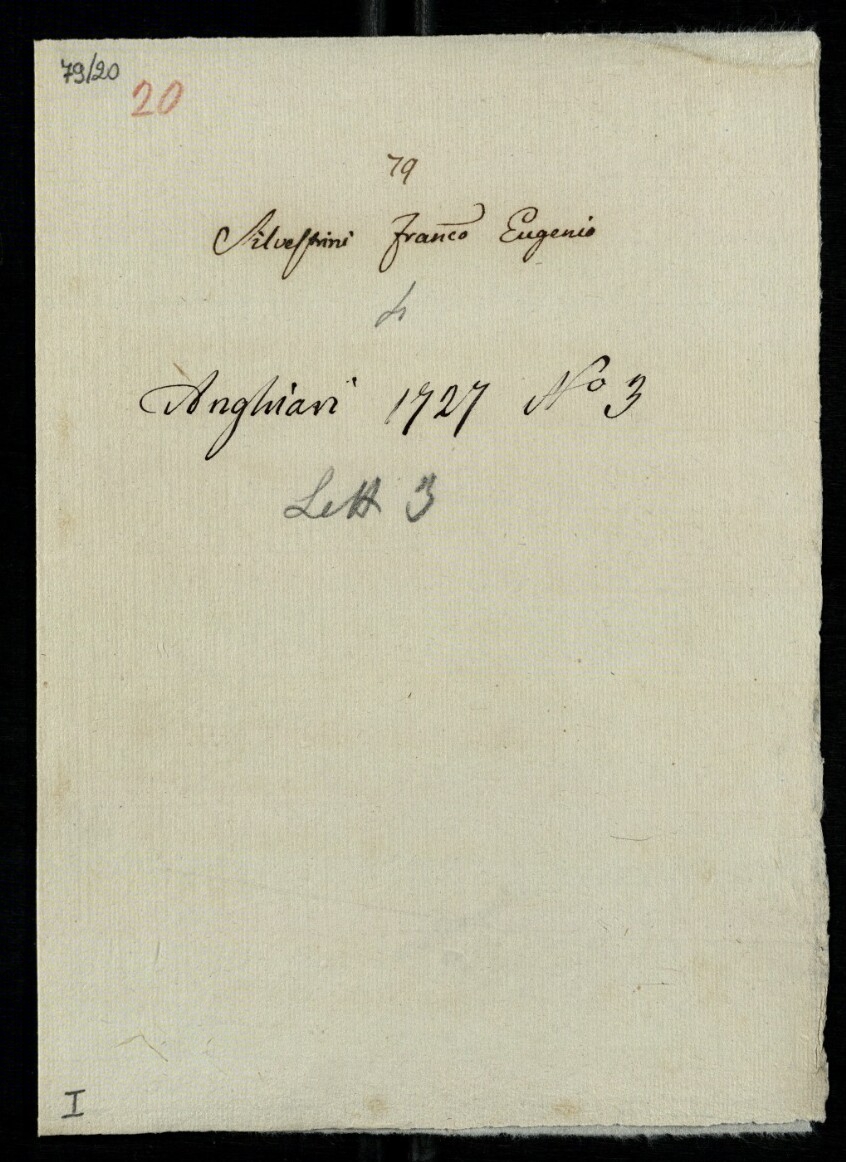 79/20
20
79
Silvestrini Franco Eugenio
Anghiari 1727 No 3
Lett 3
I